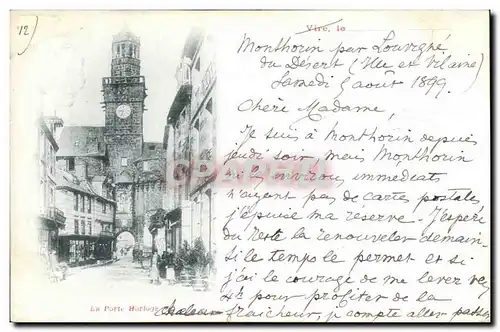 12)
Vire, le
Monthorin par Louvigné
du Désert (Ille et Vilaine)
Samedi 5 août 1899.
Chère Madame,
Je suis à Monthorin depuis
jeudi soir, mais Monthorin
ni les environs immédiats
n'ayant pas de cartes postale,
j'épuise ma réserve. J'espère
du reste la renouveler demain
si le temps le permet et si
j'ai le courage de me lever vers
4h pour profiter de la
fraîcheur, je compte aller passer
La Porte Horloge
CPARAMA